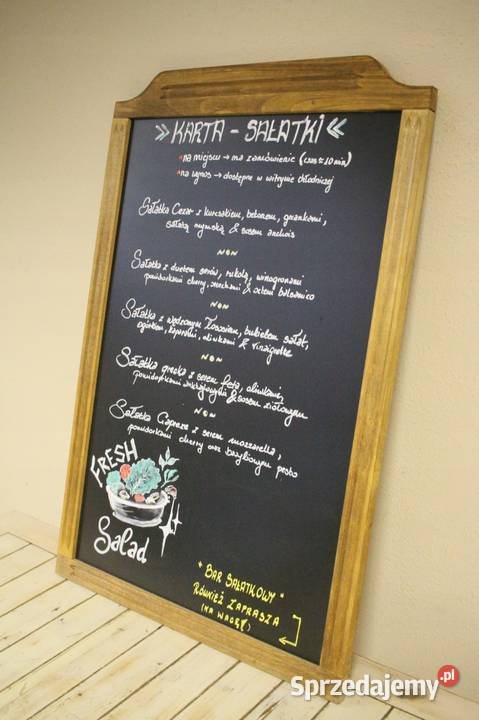 » KARTA - SAŁATKI «
*na miejscu → na zamówienie (czas ≈ 10 min)
*na wynos → dostępne w witrynie chłodniczej
Sałatka Cezar z kurczakiem, bekonem, grzankami,
sałatą rzymską & sosem anchois
Sałatka z duetem serów, rukolą, winogronami
pomidorkami cherry, orzechami & octem balsamico
Sałatka z wędzonym łososiem, bukietem sałat,
ogórkiem, kaparami, oliwkami & vinaigrette
Sałatka grecka z serem feta, oliwkami,
pomidorkami & sosem ziołowym
Sałatka Caprese z serem mozzarella,
pomidorkami cherry oraz bazyliowym pesto
FRESH
Salad
* BAR SAŁATKOWY *
RÓWNIEŻ ZAPRASZA
(NA WAGĘ!)
Sprzedajemy.pl